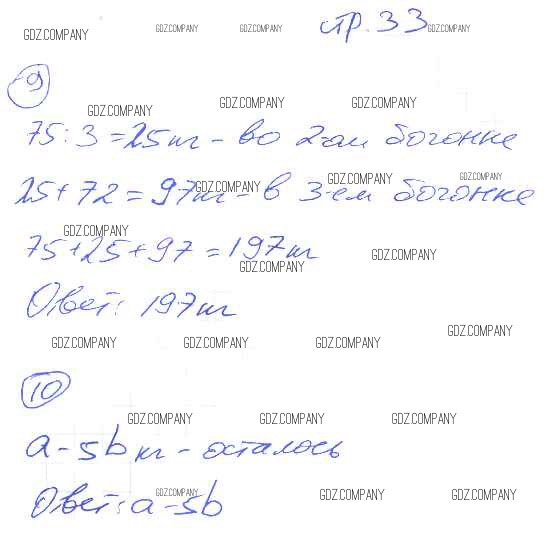 GDZ.COMPANY GDZ.COMPANY GDZ.COMPANY стр. 33 GDZ.COMPANY
9
GDZ.COMPANY GDZ.COMPANY GDZ.COMPANY
75 : 3 = 25 кг - во 2-ом бочонке
25 + 72 = 97 кг - в 3-ем бочонке
GDZ.COMPANY GDZ.COMPANY GDZ.COMPANY
GDZ.COMPANY
75 + 25 + 97 = 197 кг
GDZ.COMPANY GDZ.COMPANY
Ответ: 197 кг
GDZ.COMPANY
GDZ.COMPANY GDZ.COMPANY GDZ.COMPANY
10
GDZ.COMPANY GDZ.COMPANY GDZ.COMPANY
a - 5b кг - осталось
Ответ: a - 5b
GDZ.COMPANY GDZ.COMPANY GDZ.COMPANY